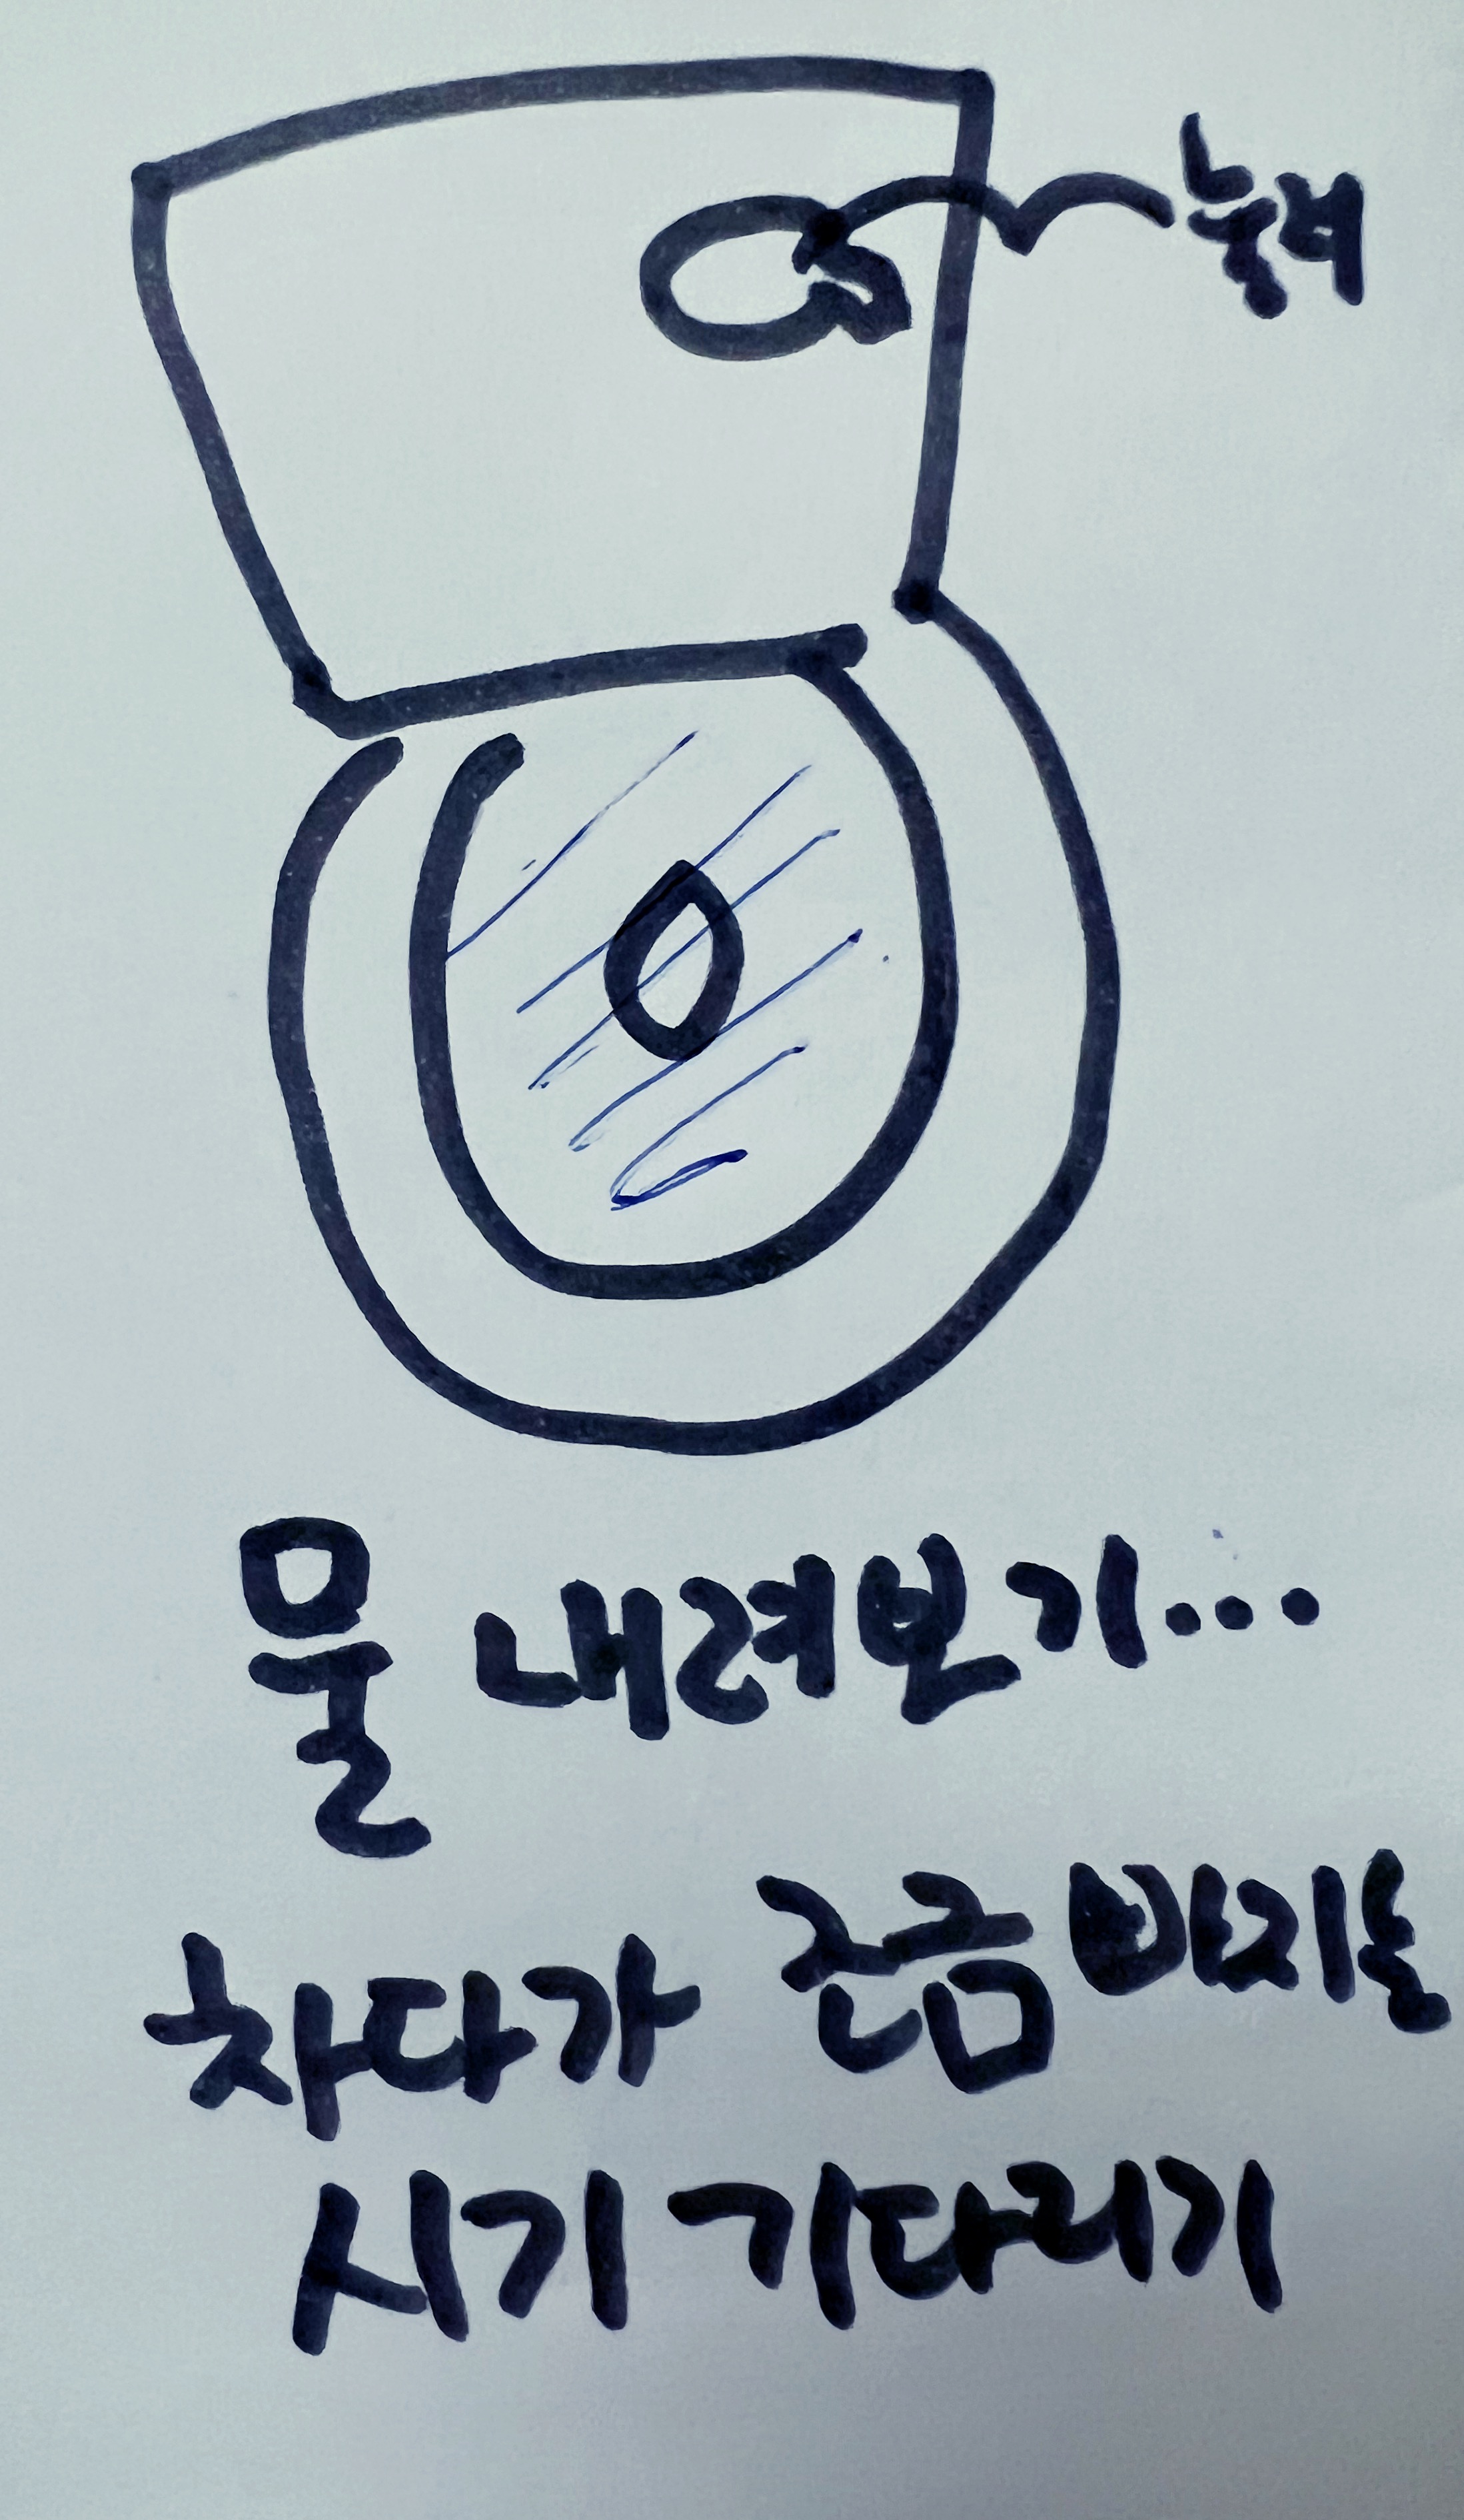 눌러
물 내려보기...
차다가 조금 빠지는
시기 기다리기